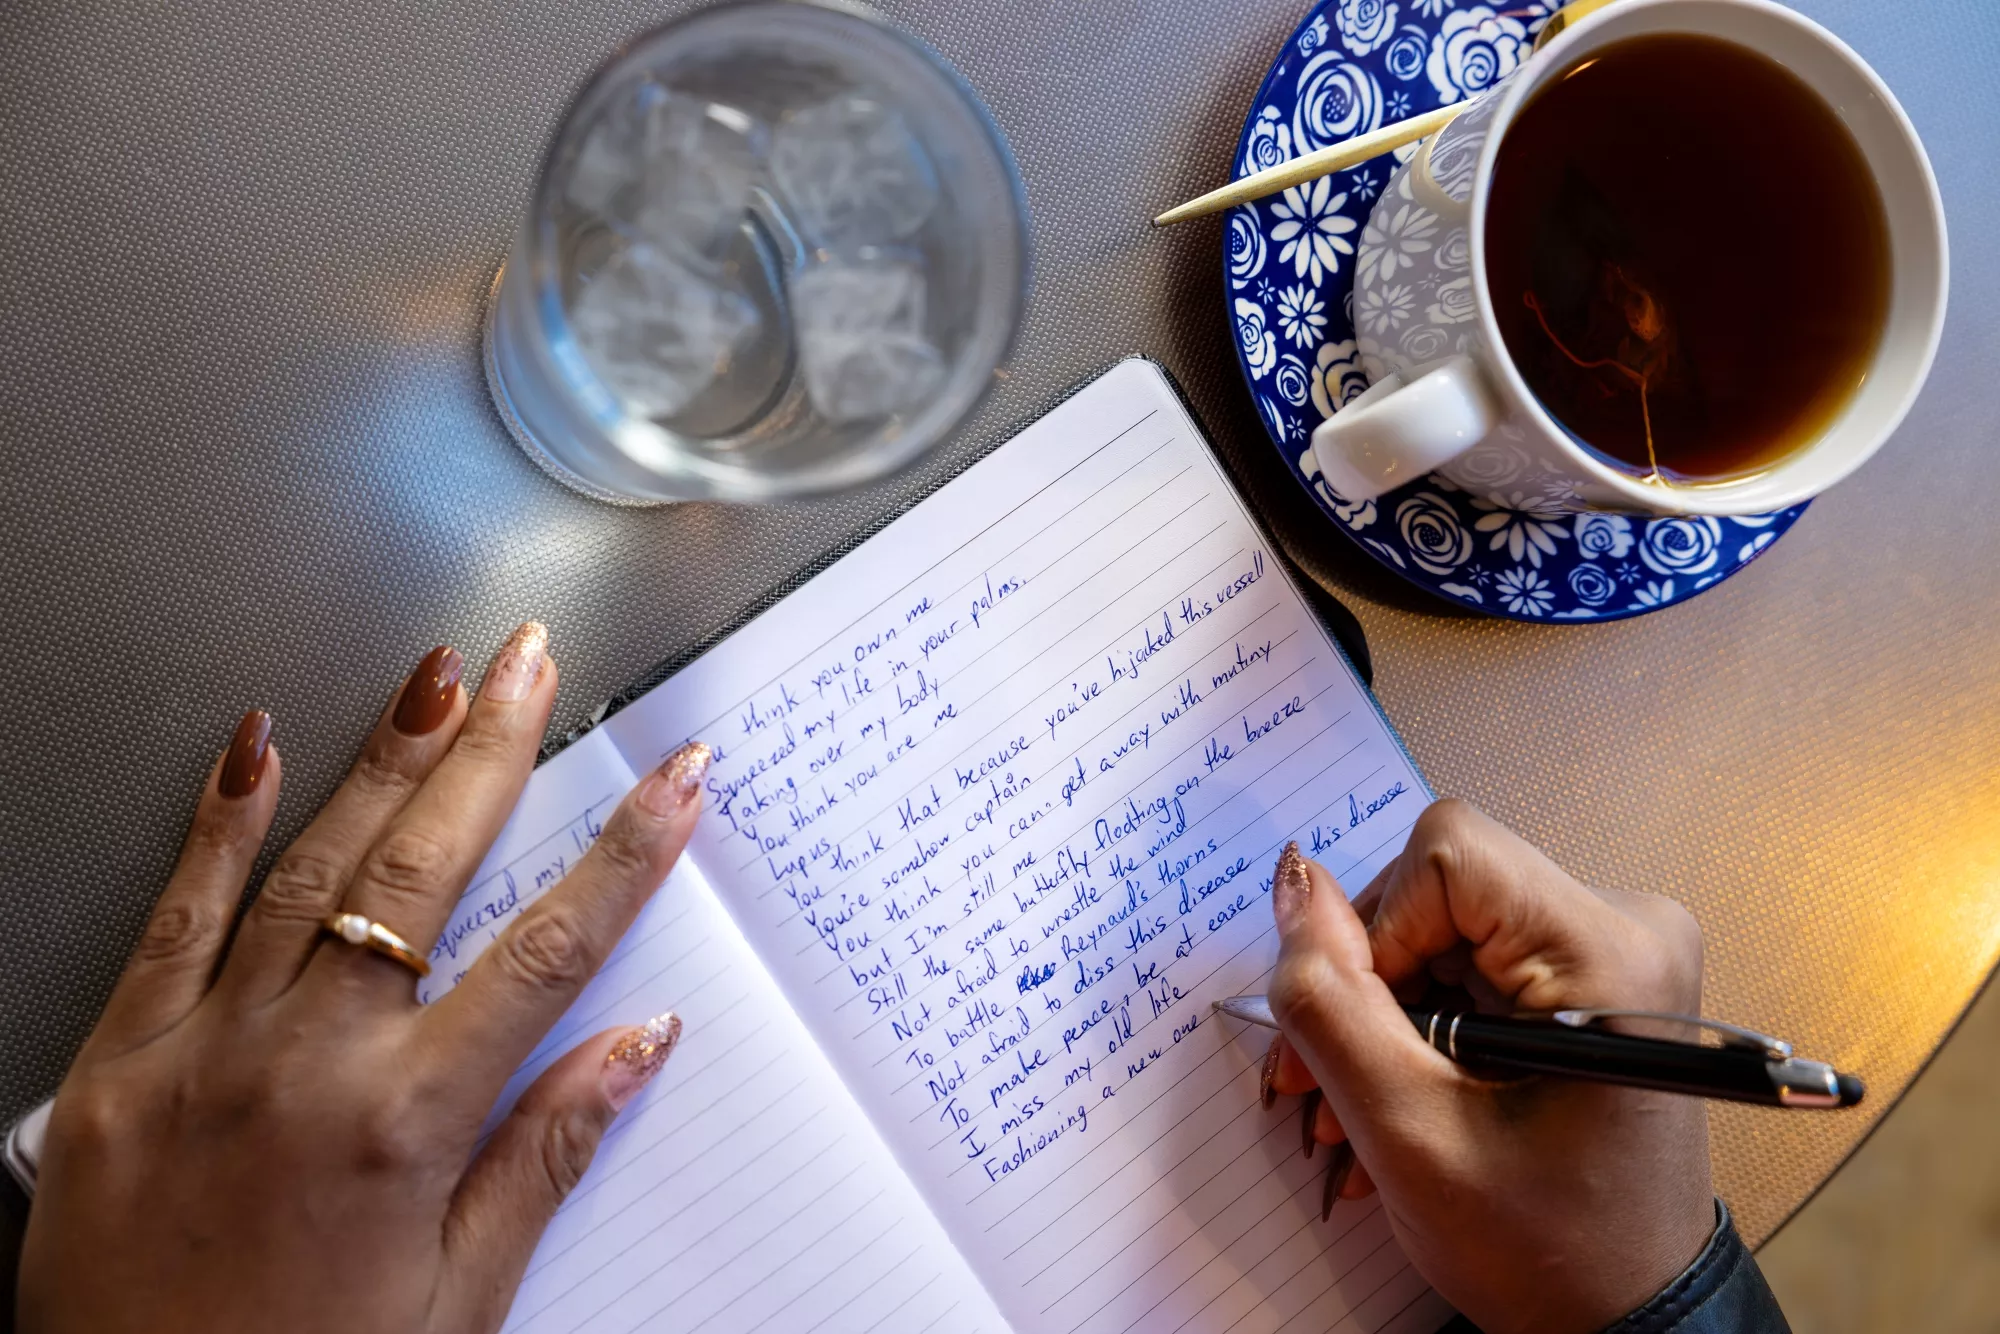 squeezed my life
u think you own me
Squeezed my life in your palms.
Taking over my body
You think you are me
Lupus
You think that because you've hijaked this vessell
You're somehow captain
You think you can get a way with mutiny
but I'm still me
Still the same butterfly floating on the breeze
Not afraid to wrestle the wind
To battle Reynaud's thorns
Not afraid to diss this disease
To make peace, be at ease this disease
I miss my old life
Fashioning a new one